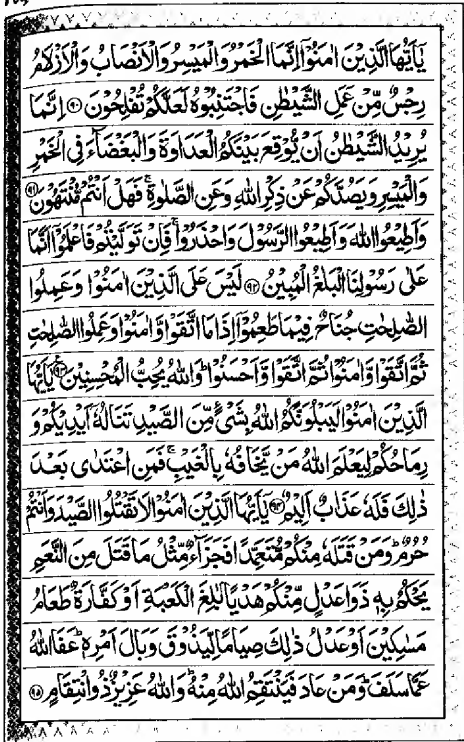 يٰۤاَيُّهَا الَّذِيْنَ اٰمَنُوْۤا اِنَّمَا الْخَمْرُ وَالْمَيْسِرُ وَالْاَنْصَابُ وَالْاَزْلَامُ
رِجْسٌ مِّنْ عَمَلِ الشَّيْطٰنِ فَاجْتَنِبُوْهُ لَعَلَّكُمْ تُفْلِحُوْنَ ۹۰ اِنَّمَا
يُرِيْدُ الشَّيْطٰنُ اَنْ يُّوْقِعَ بَيْنَكُمُ الْعَدَاوَةَ وَالْبَغْضَآءَ فِى الْخَمْرِ
وَالْمَيْسِرِ وَيَصُدَّكُمْ عَنْ ذِكْرِ اللّٰهِ وَعَنِ الصَّلٰوةِ ۚ فَهَلْ اَنْتُمْ مُّنْتَهُوْنَ ۹۱
وَاَطِيْعُوا اللّٰهَ وَاَطِيْعُوا الرَّسُوْلَ وَاحْذَرُوْا ۚ فَاِنْ تَوَلَّيْتُمْ فَاعْلَمُوْۤا اَنَّمَا
عَلٰى رَسُوْلِنَا الْبَلٰغُ الْمُبِيْنُ ۹۲ لَيْسَ عَلَى الَّذِيْنَ اٰمَنُوْا وَعَمِلُوا
الصّٰلِحٰتِ جُنَاحٌ فِيْمَا طَعِمُوْۤا اِذَا مَا اتَّقَوْا وَّاٰمَنُوْا وَعَمِلُوا الصّٰلِحٰتِ
ثُمَّ اتَّقَوْا وَّاٰمَنُوْا ثُمَّ اتَّقَوْا وَّاَحْسَنُوْا ؕ وَاللّٰهُ يُحِبُّ الْمُحْسِنِيْنَ ۹۳ يٰۤاَيُّهَا
الَّذِيْنَ اٰمَنُوْا لَيَبْلُوَنَّكُمُ اللّٰهُ بِشَىْءٍ مِّنَ الصَّيْدِ تَنَالُهٗۤ اَيْدِيْكُمْ وَ
رِمَاحُكُمْ لِيَعْلَمَ اللّٰهُ مَنْ يَّخَافُهٗ بِالْغَيْبِ ۚ فَمَنِ اعْتَدٰى بَعْدَ
ذٰلِكَ فَلَهٗ عَذَابٌ اَلِيْمٌ ۹۴ يٰۤاَيُّهَا الَّذِيْنَ اٰمَنُوْا لَا تَقْتُلُوا الصَّيْدَ وَاَنْتُمْ
حُرُمٌ ؕ وَمَنْ قَتَلَهٗ مِنْكُمْ مُّتَعَمِّدًا فَجَزَآءٌ مِّثْلُ مَا قَتَلَ مِنَ النَّعَمِ
يَحْكُمُ بِهٖ ذَوَا عَدْلٍ مِّنْكُمْ هَدْيًۢا بٰلِغَ الْكَعْبَةِ اَوْ كَفَّارَةٌ طَعَامُ
مَسٰكِيْنَ اَوْ عَدْلُ ذٰلِكَ صِيَامًا لِّيَذُوْقَ وَبَالَ اَمْرِهٖ ؕ عَفَا اللّٰهُ
عَمَّا سَلَفَ ؕ وَمَنْ عَادَ فَيَنْتَقِمُ اللّٰهُ مِنْهُ ؕ وَاللّٰهُ عَزِيْزٌ ذُو انْتِقَامٍ ۹۵